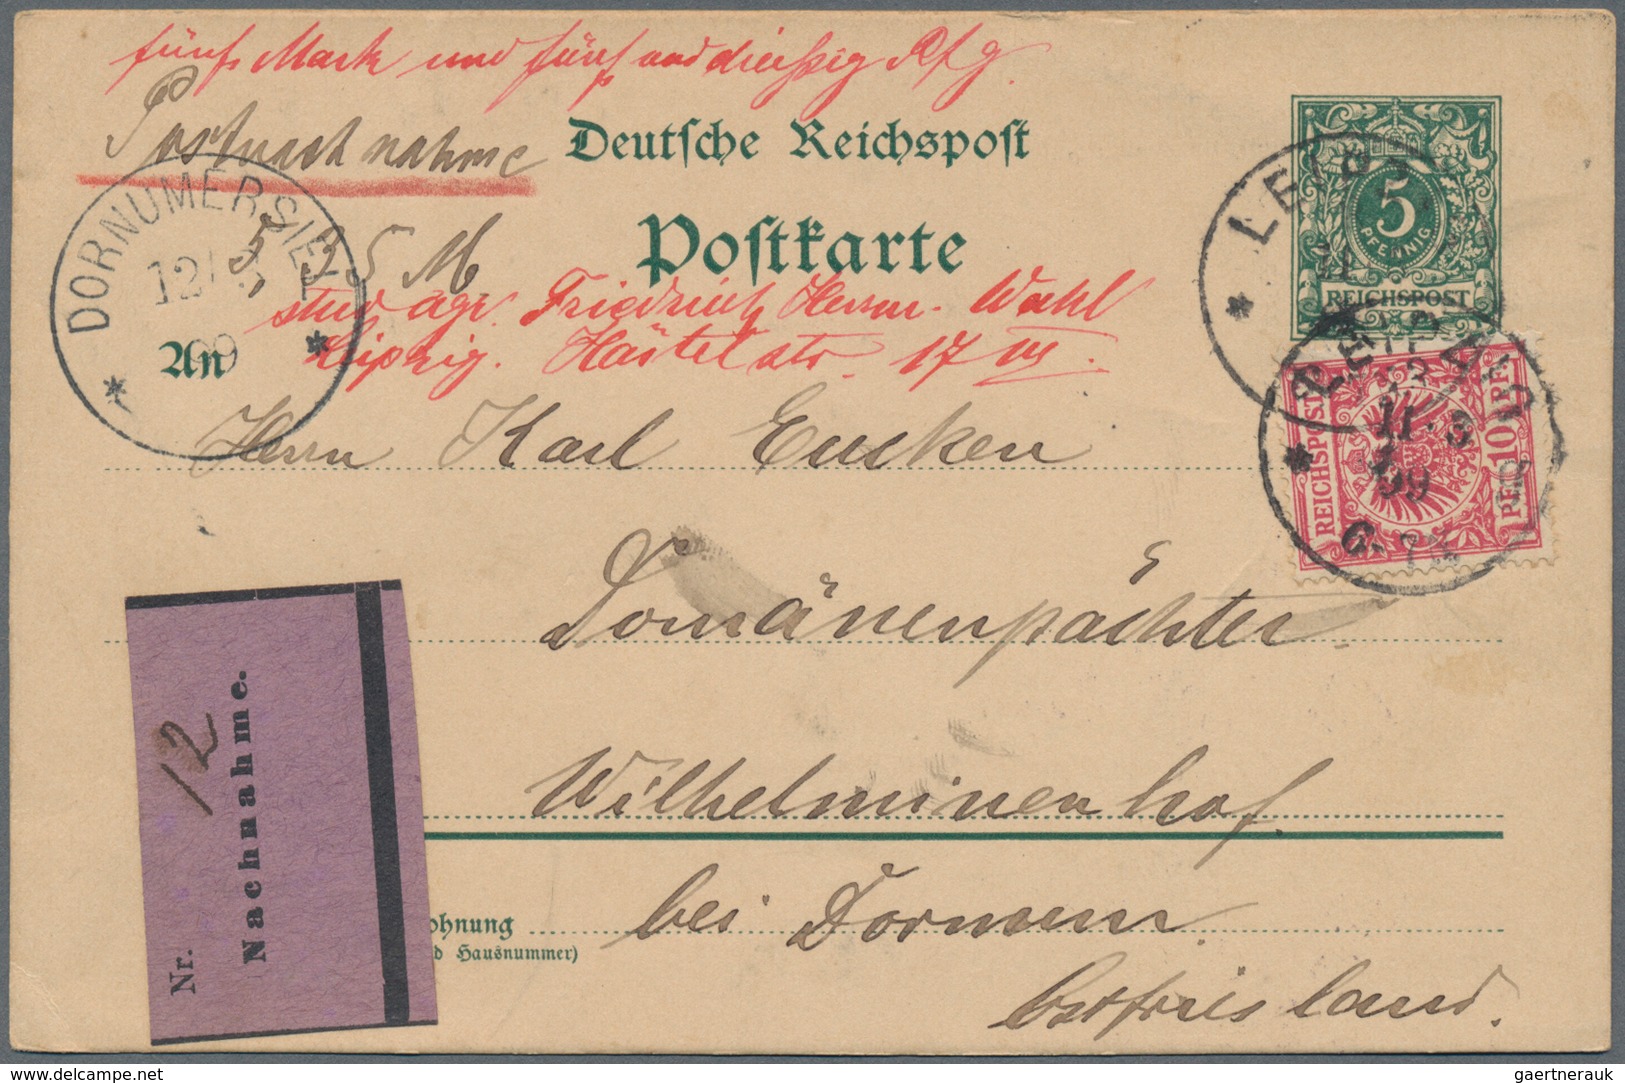 fünf Mark und fünf und dreißig Pfg.
Postnachnahme
Deutsche Reichspost
5 M 35
Postkarte
stud agr. Friedrich Herm. Wahl
Leipzig. Härtelstr. 17 III.
An
DORNUMERSIEL
12/5
99
5
PFENNIG
REICHSPOST
LEIPZIG
11
LEIPZIG
11.5
99
6-7
REICHSPOST
10 PF
Herrn Karl Eucken
Domänenpächter
Wilhelminenhof
bei Dornum
Ostfriesland.
Nr. 12
Nachnahme.
ohnung
d Hausnummer)
www.delcampe.net
gaertnerauk